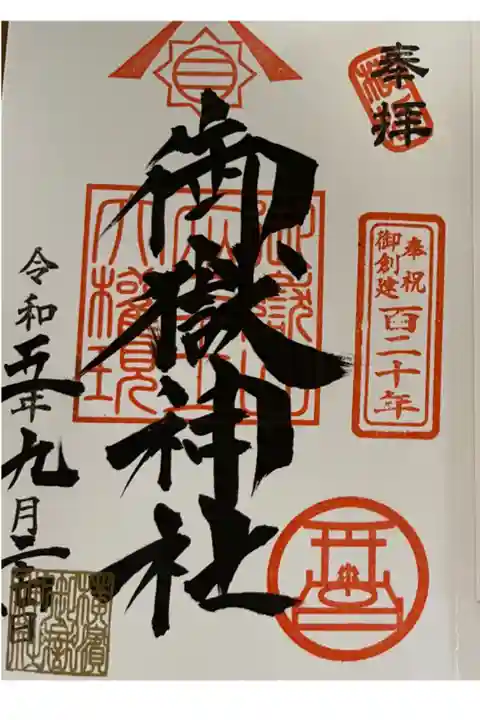 奉拝
奉祝
御創建
百二十年
御嶽神社
令和五年九月二
日
大権現